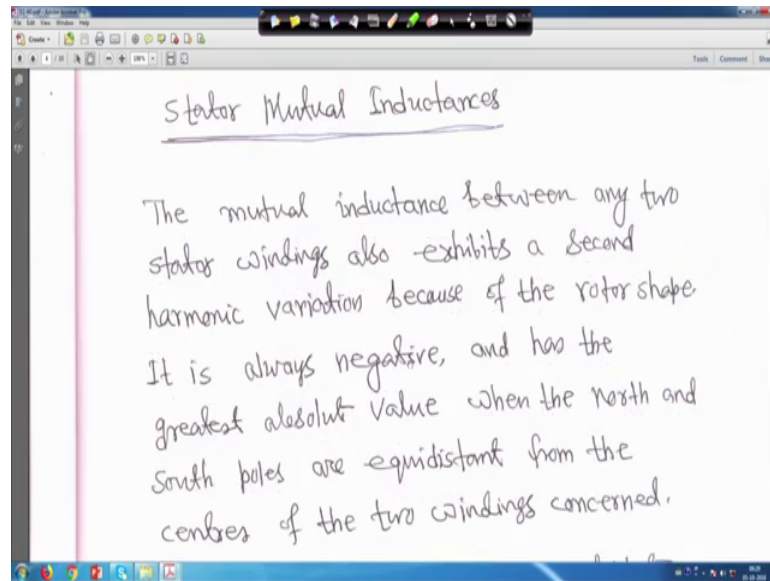 File Edit View Window Help
Create
Tools
Comment
Stator Mutual Inductances
The mutual inductance between any two
stator windings also exhibits a second
harmonic variation because of the rotor shape.
It is always negative, and has the
greatest absolute value when the north and
south poles are equidistant from the
centres of the two windings concerned.